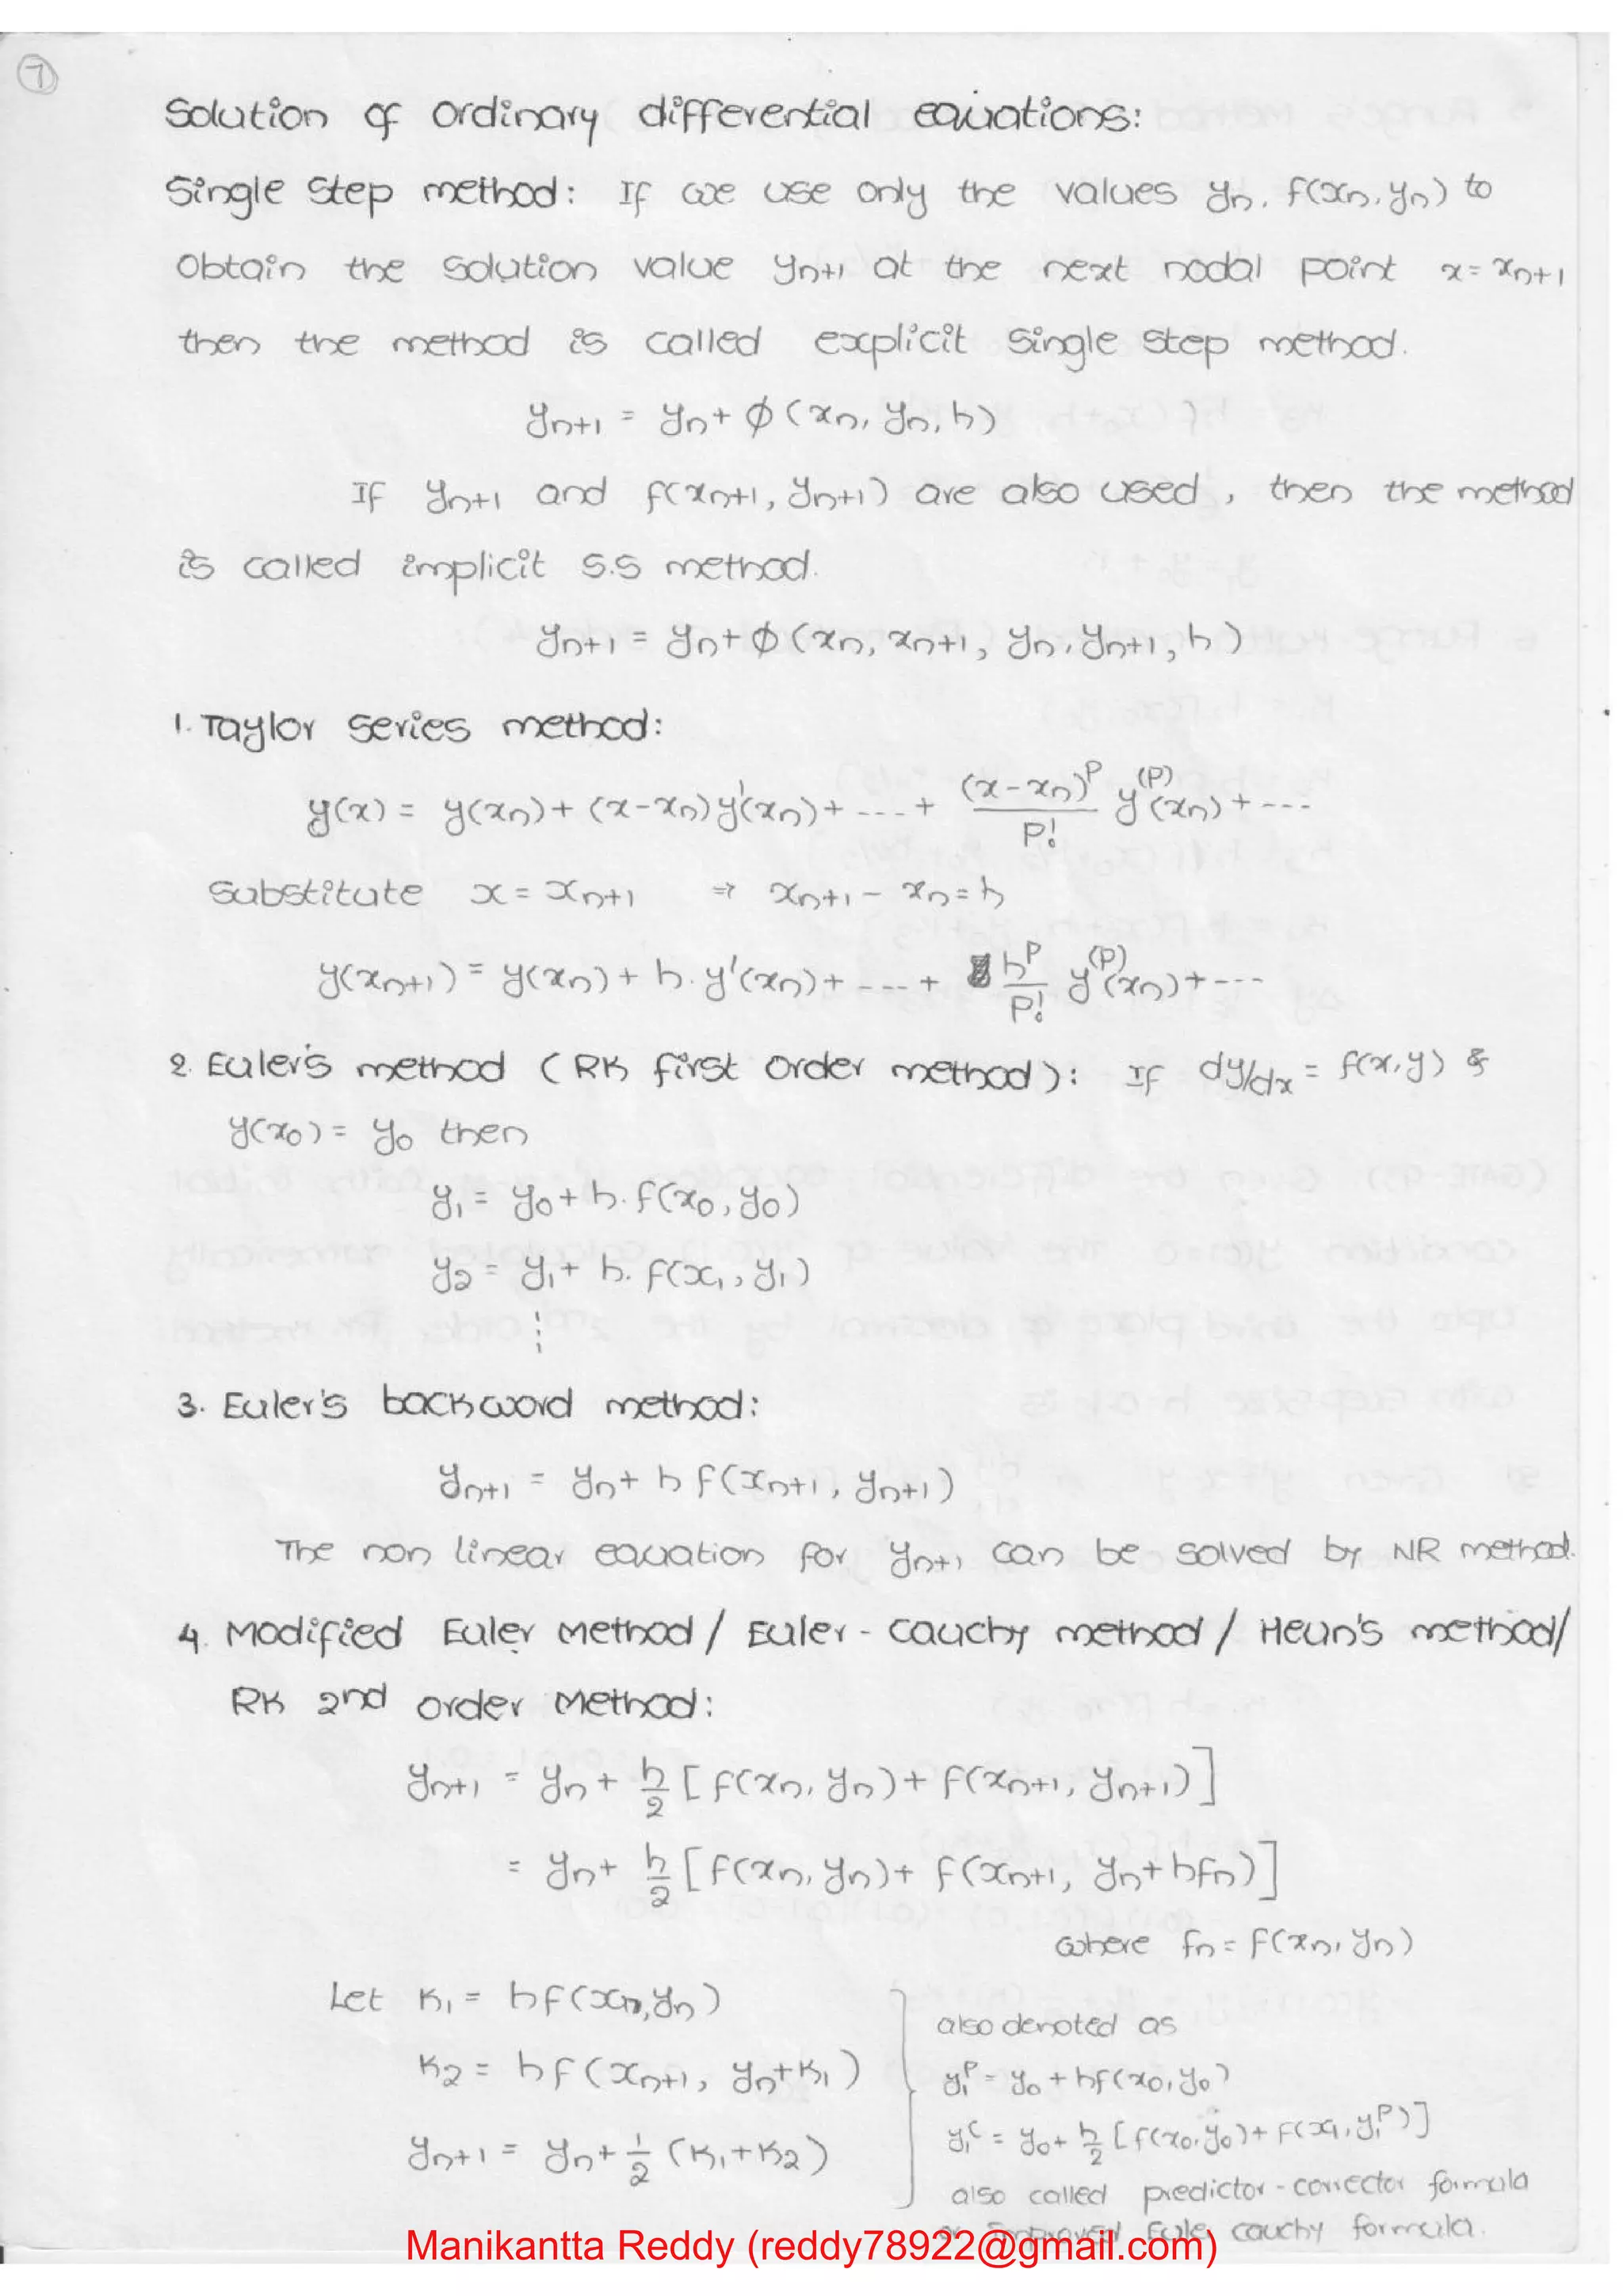 7
Solution of ordinary differential equations:
Single step method: If we use only the values yₙ, f(xₙ, yₙ) to
obtain the solution value yₙ₊₁ at the next nodal point x = xₙ₊₁
then the method is called explicit single step method.
yₙ₊₁ = yₙ + ϕ (xₙ, yₙ, h)
If yₙ₊₁ and f(xₙ₊₁, yₙ₊₁) are also used, then the method
is called implicit S.S method.
yₙ₊₁ = yₙ + ϕ (xₙ, xₙ₊₁, yₙ, yₙ₊₁, h)
1. Taylor series method:
y(x) = y(xₙ) + (x-xₙ) y'(xₙ) + ---- + (x-xₙ)^P / P! y^(P)(xₙ) + ---
Substitute x = xₙ₊₁ ⇒ xₙ₊₁ - xₙ = h
y(xₙ₊₁) = y(xₙ) + h. y'(xₙ) + ---- + h^P / P! y^(P)(xₙ) + ---
2. Euler's method (RK first order method): If dy/dx = f(x,y) &
y(x₀) = y₀ then
y₁ = y₀ + h. f(x₀, y₀)
y₂ = y₁ + h. f(x₁, y₁)
⋮
3. Euler's backword method:
yₙ₊₁ = yₙ + h f(xₙ₊₁, yₙ₊₁)
The non linear equation for yₙ₊₁ can be solved by NR method.
4. Modified Euler Method / Euler - cauchy method / Heun's method/
RK 2nd order Method:
yₙ₊₁ = yₙ + h/2 [f(xₙ, yₙ) + f(xₙ₊₁, yₙ₊₁)]
= yₙ + h/2 [f(xₙ, yₙ) + f(xₙ₊₁, yₙ + hfₙ)]
where fₙ = f(xₙ, yₙ)
Let K₁ = hf(xₙ, yₙ)
K₂ = hf (xₙ₊₁, yₙ + K₁)
yₙ₊₁ = yₙ + 1/2 (K₁ + K₂)
also denoted as
y₁^P = y₀ + hf(x₀, y₀)
y₁^C = y₀ + h/2 [f(x₀, y₀) + f(x₁, y₁^P)]
also called predictor - corrector formula
or improved Euler cauchy formula.
Manikantta Reddy (reddy78922@gmail.com)